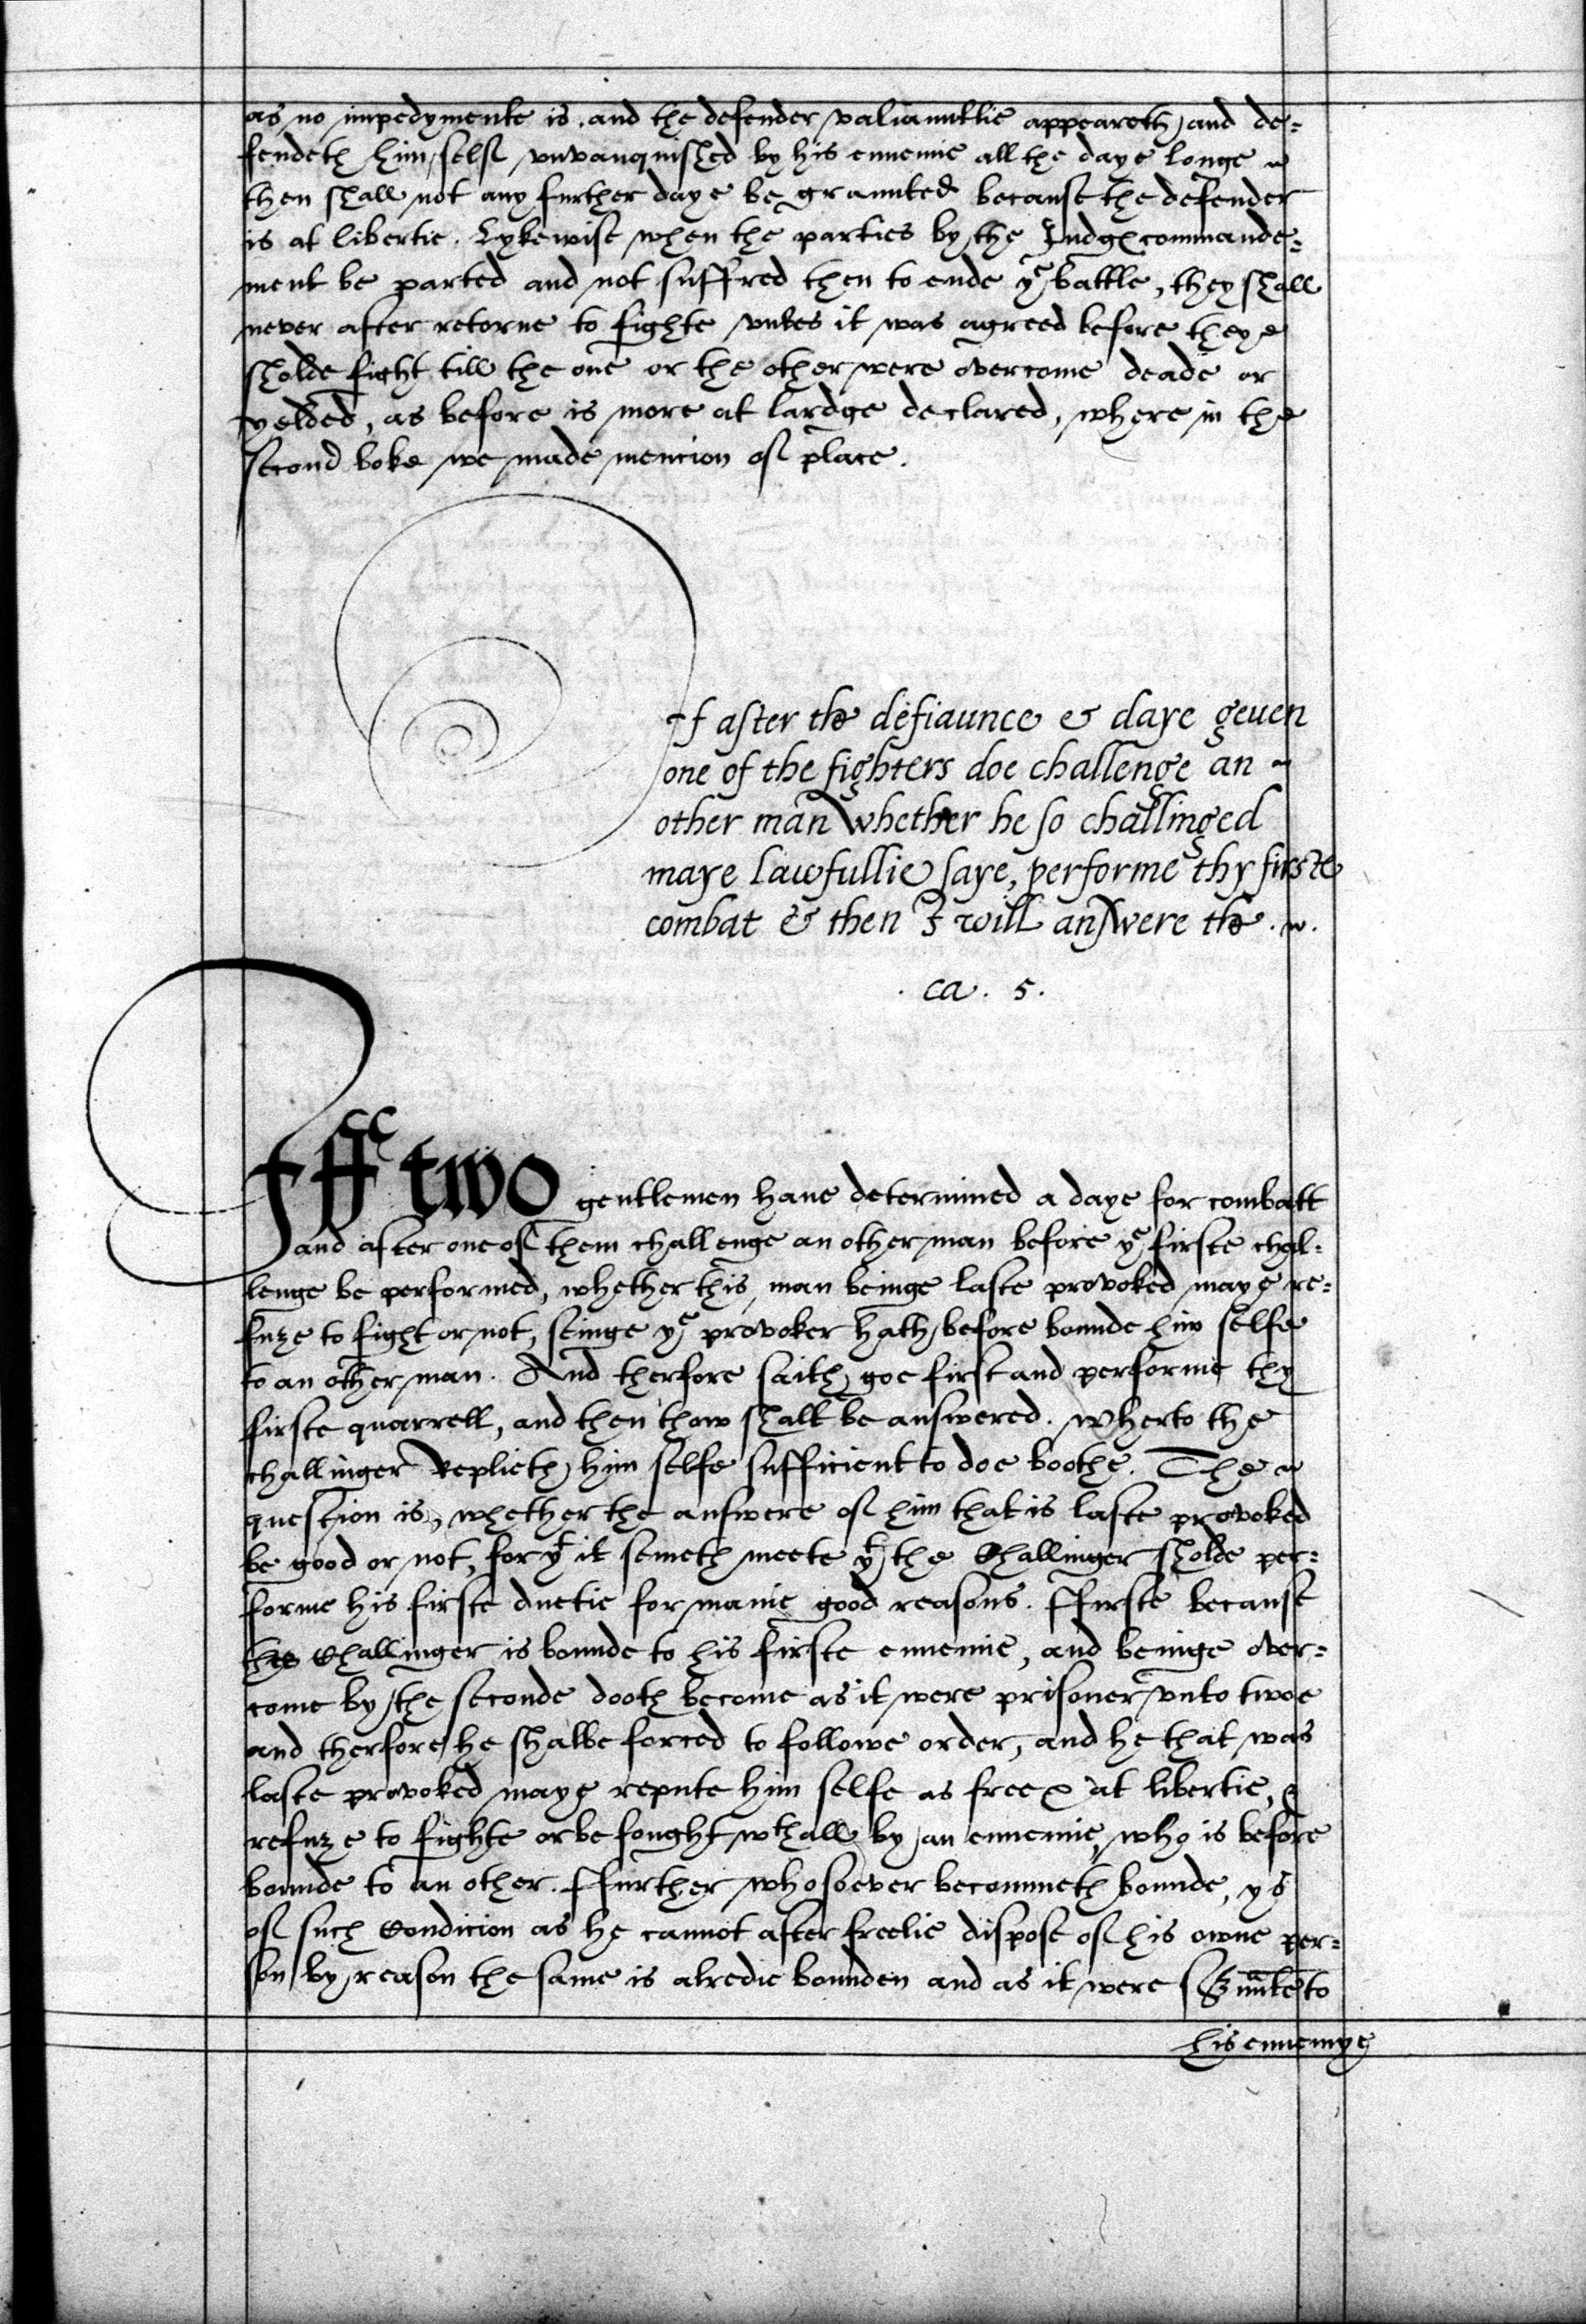 as no impedymente is. and the defender valiaunttlie appeareth, and de=
fendeth him selff unvanquished by his ennemie all the daye longe
then shall not any further daye be graunted because the defender
is at libertie. Lykewise when the parties by the Judges commande=
ment be parted and not suffred then to ende yͤ battle, they shall
never after retorne to fighte vnles it was agreed before theye
sholde fight till the one or the other were overcome deade or
yelded, as before is more at lardge declared, where in the
second boke we made mencion off place.
If after the defiaunce & daye geuen
one of the fighters doe challenge an
other man whether he so challinged
maye lawfullie saye, performe thy firste
combat & then I will answere the.
. ca. 5.
Iff two gentlemen haue determined a daye for combatt
and after one off them challenge an other man before yͤ firste chal=
lenge be performed, whether this man beinge laste provoked maye re=
fuze to fight or not, seinge yͤ provoker hath before bounde him selfe
to an other man. And therfore saith, goe first and performe thy
firste quarrell, and then thow shalt be answered. wherto the
challinger Replieth him selfe sufficient to doe boothe. The
question is, whether the answere off him that is laste provoked
be good or not, for yͭ it semeth meete yͭ the Challinger sholde per=
forme his firste duetie for manie good reasons. Ffirste because
the Challinger is bounde to his firste ennemie, and beinge over=
come by the seconde dooth become as it were prisoner vnto twoe
and therfore he shalbe forced to followe order, and he that was
laste provoked maye repute him selfe as free & at libertie, &
refuze to fighte or be fought wͭhall by an ennemie, who is before
bounde to an other. Ffurther whosoever becommeth bounde, ys
off such Condicion as he cannot after freelie dispose off his owne per=
son by reason the same is alredie bounden and as it were to
his ennemye